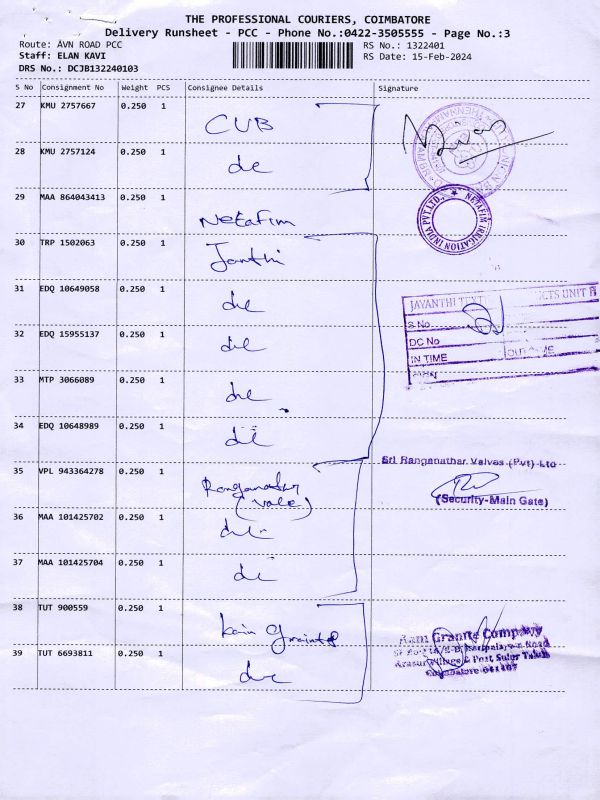 THE PROFESSIONAL COURIERS, COIMBATORE
Delivery Runsheet - PCC - Phone No.:0422-3505555 - Page No.:3
Route: AVN ROAD PCC
RS No.: 1322401
Staff: ELAN KAVI
RS Date: 15-Feb-2024
DRS No.: DCJB132240103
S No Consignment No Weight PCS Consignee Details Signature
27 KMU 2757667 0.250 1
CUB
28 KMU 2757124 0.250 1
29 MAA 864043413 0.250 1
Netafim
NETAFIM IRRIGATION INDIA PVT.LTD.,
30 TRP 1502063 0.250 1
31 EDQ 10649058 0.250 1
JAYANTHI UNIT
S No
32 EDQ 15955137 0.250 1
DC No
IN TIME
33 MTP 3066089 0.250 1
34 EDQ 10648989 0.250 1
Sri Ranganathar Valves (Pvt) Ltd
35 VPL 943364278 0.250 1
Ranganathar
(Security-Main Gate)
36 MAA 101425702 0.250 1
37 MAA 101425704 0.250 1
38 TUT 900559 0.250 1
Granite Company
39 TUT 6693811 0.250 1
Village & Post, Sulur Taluk
Coimbatore